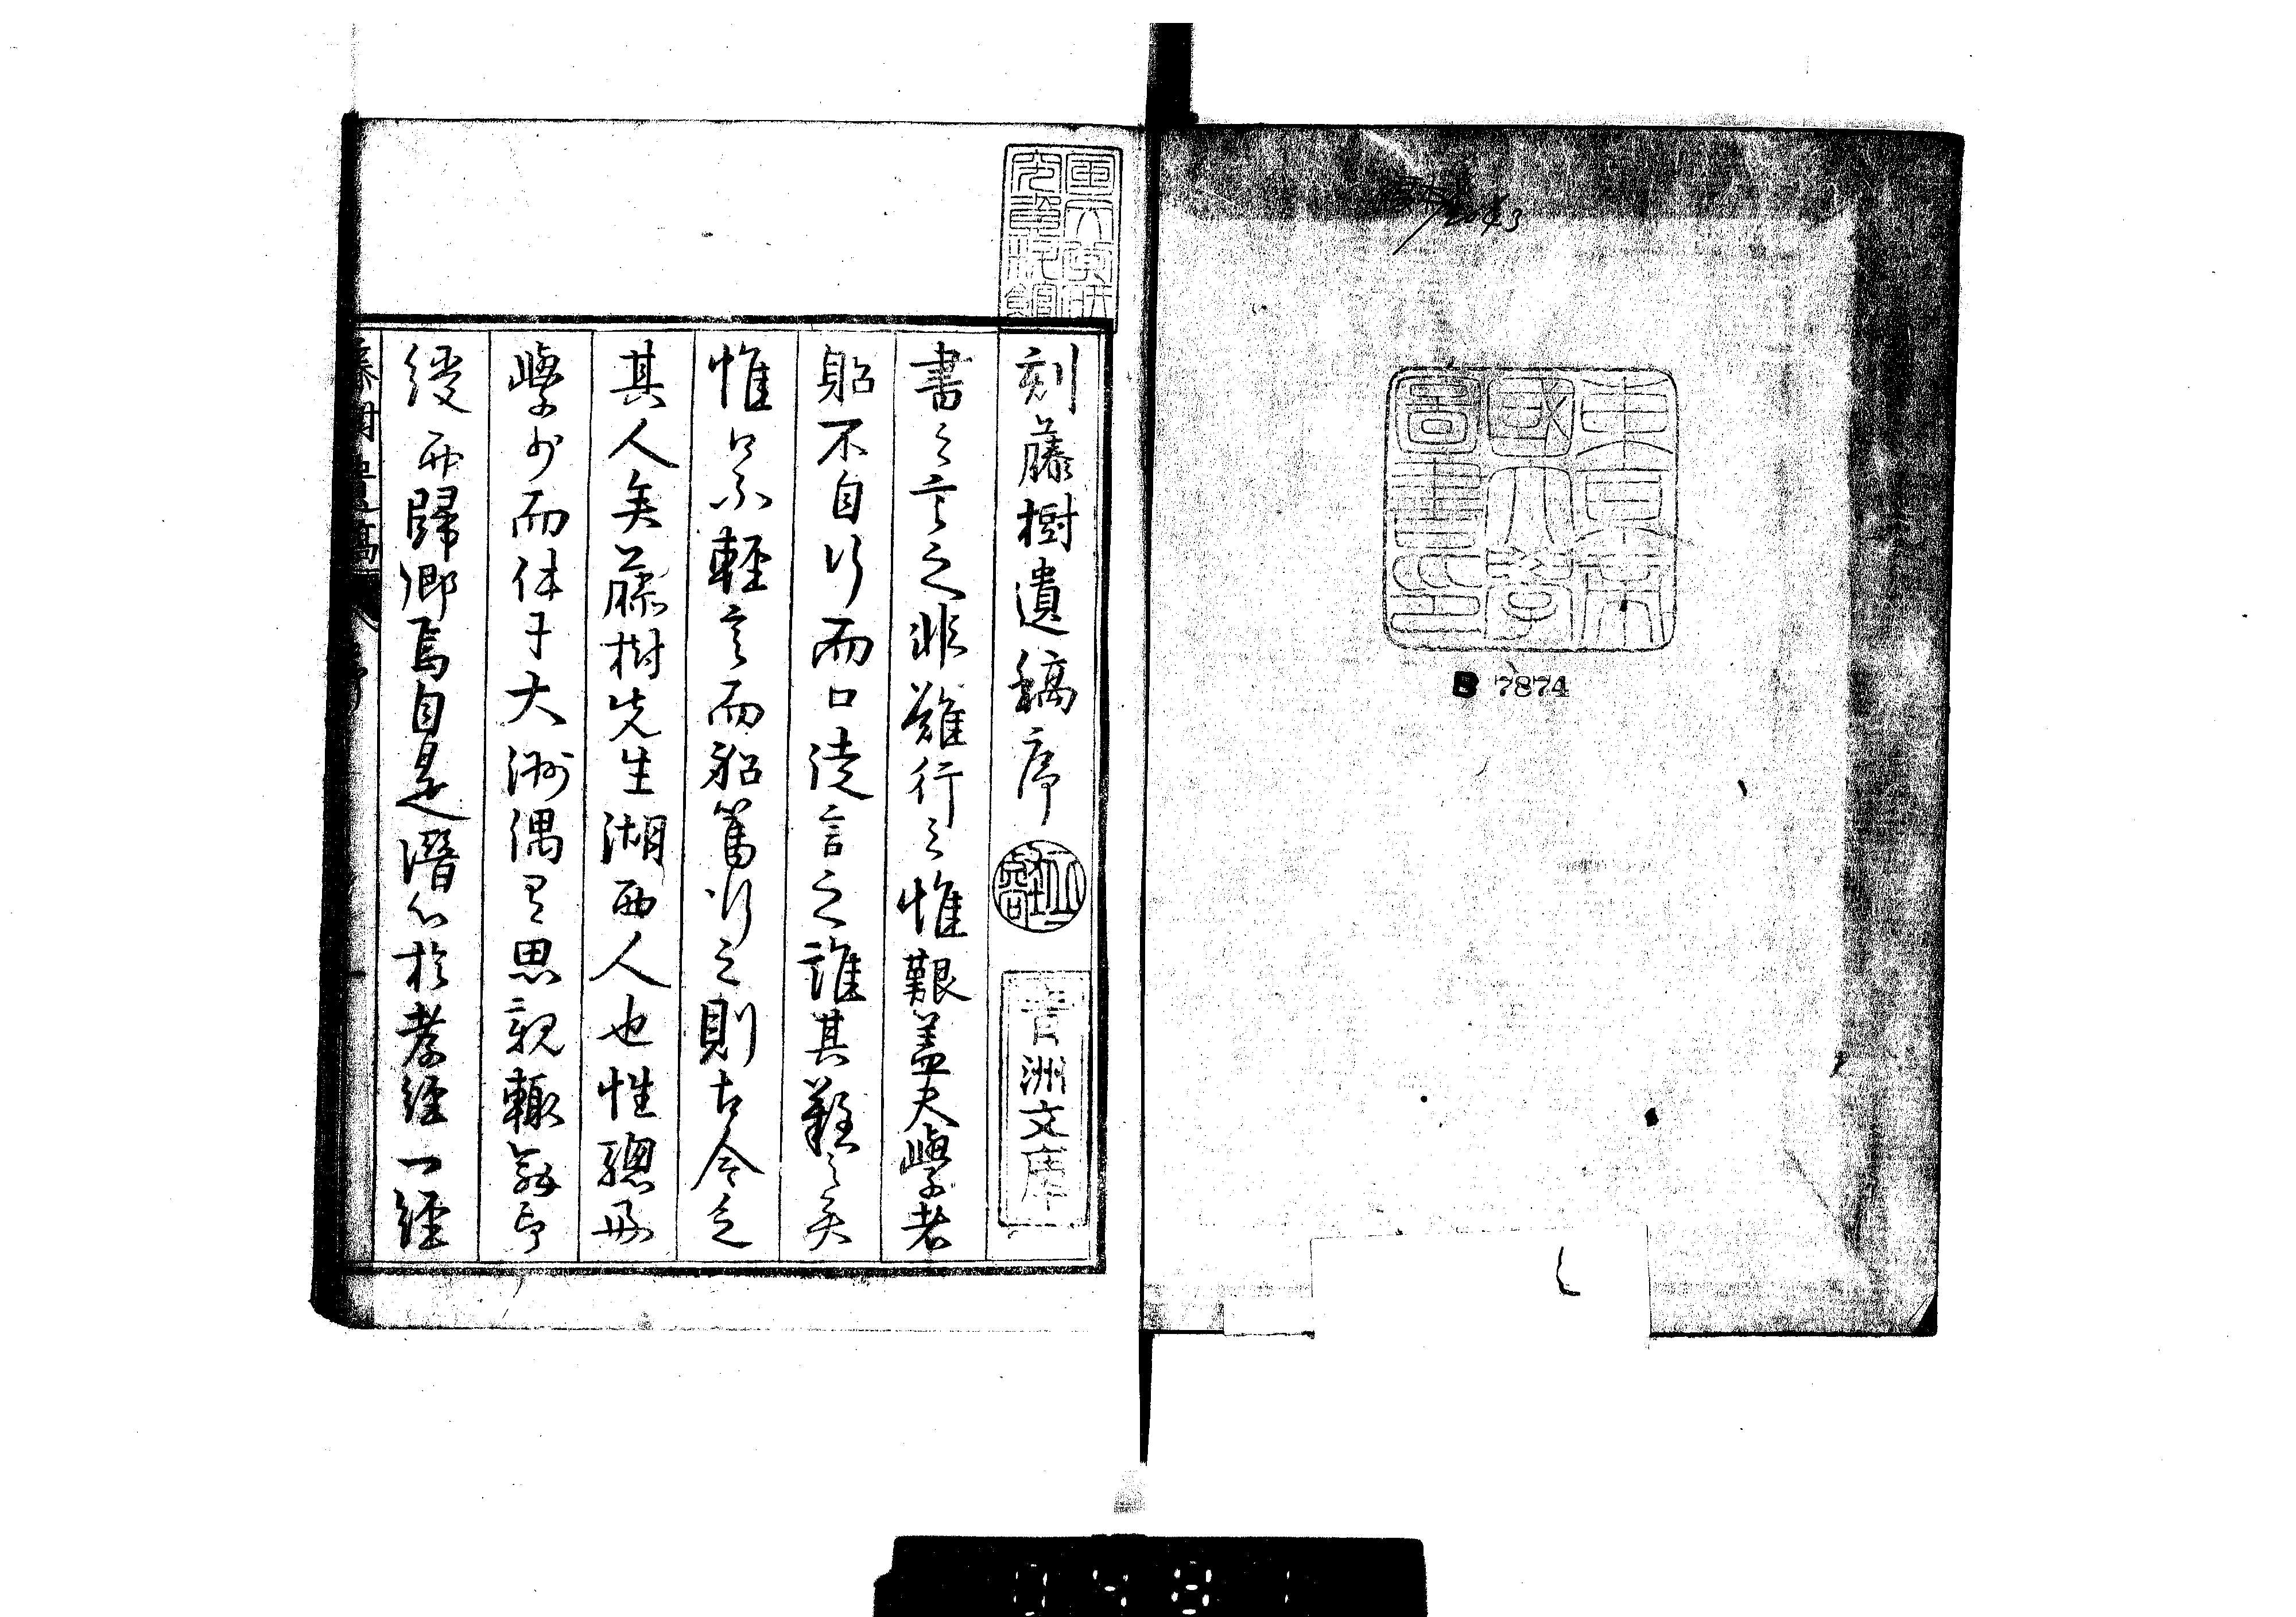 東京帝
國大學
圖書印
B 7874
刻藤樹遺稿序
青洲文庫
書云言之非難行之惟艱盖夫學者
躬不自行而口徒言之誰其難之矣
惟口不輕言而躬篤行之則古今乏
其人矣藤樹先生湖西人也性聰
學少而仕于大洲偶有思親輒辭
綬而歸鄉焉自是潛心於孝經一經